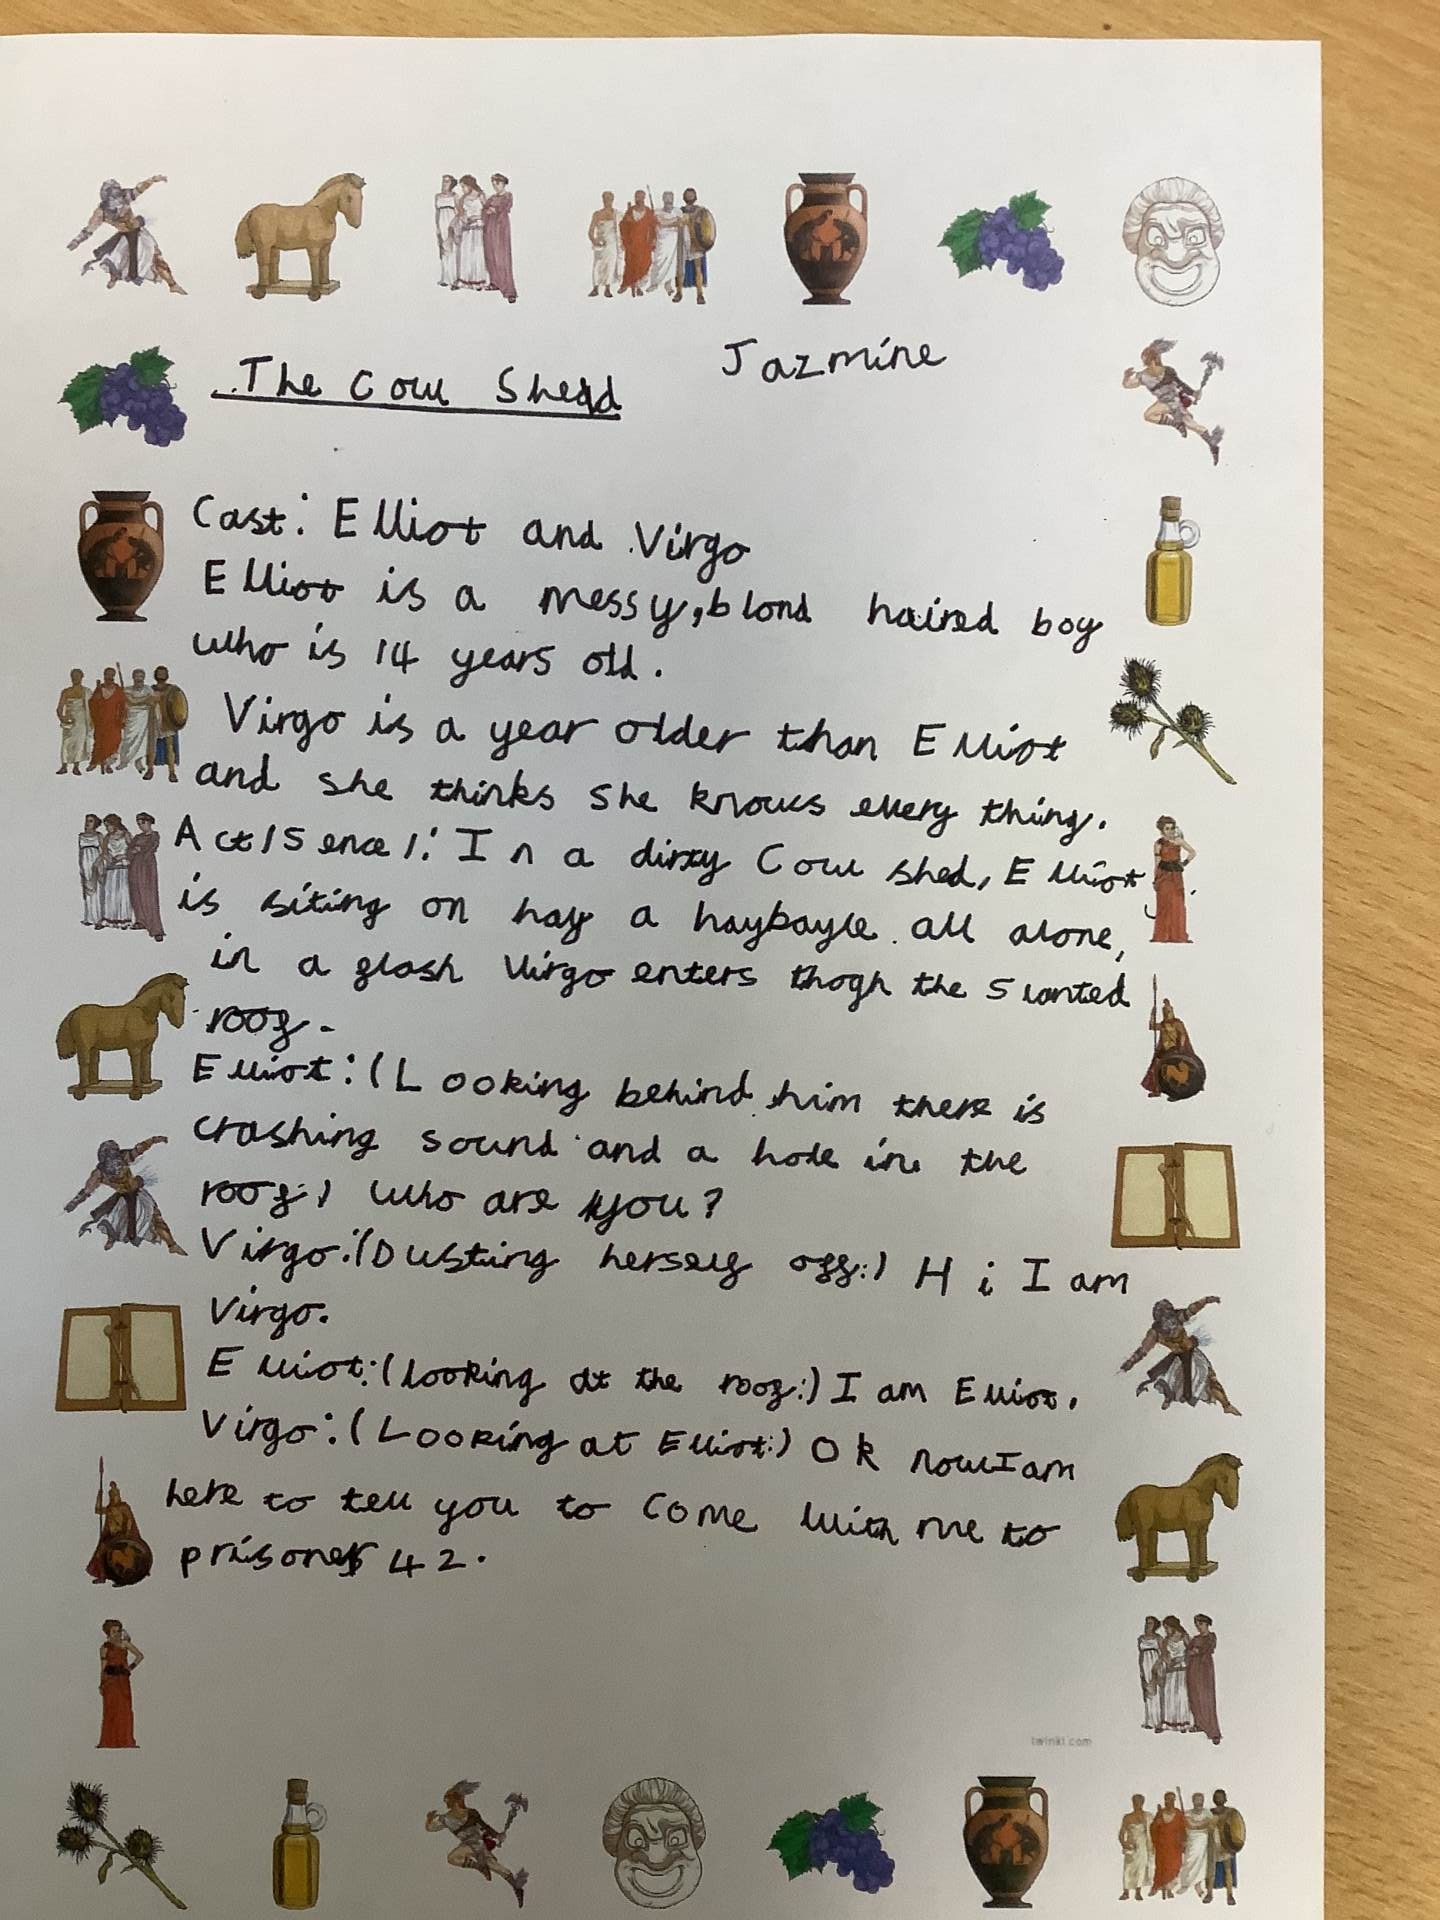 The Cow Shed
Jazmine
Cast: Elliot and Virgo
Elliot is a messy, blond haired boy
who is 14 years old.
Virgo is a year older than Elliot
and she thinks she knows every thing.
Act 1 Sence 1: In a dirty Cow shed, Elliot
is siting on hay a haybayle all alone,
in a flash Virgo enters thogh the slanted
roof.
Elliot: (Looking behind him there is
crashing sound and a hole in the
roof:) Who are you?
Virgo: (Dusting herself off:) Hi I am
Virgo.
Elliot: (looking at the roof:) I am Elliot.
Virgo: (Looking at Elliot:) Ok now I am
here to tell you to come with me to
prisoner 42.
twinkl.com